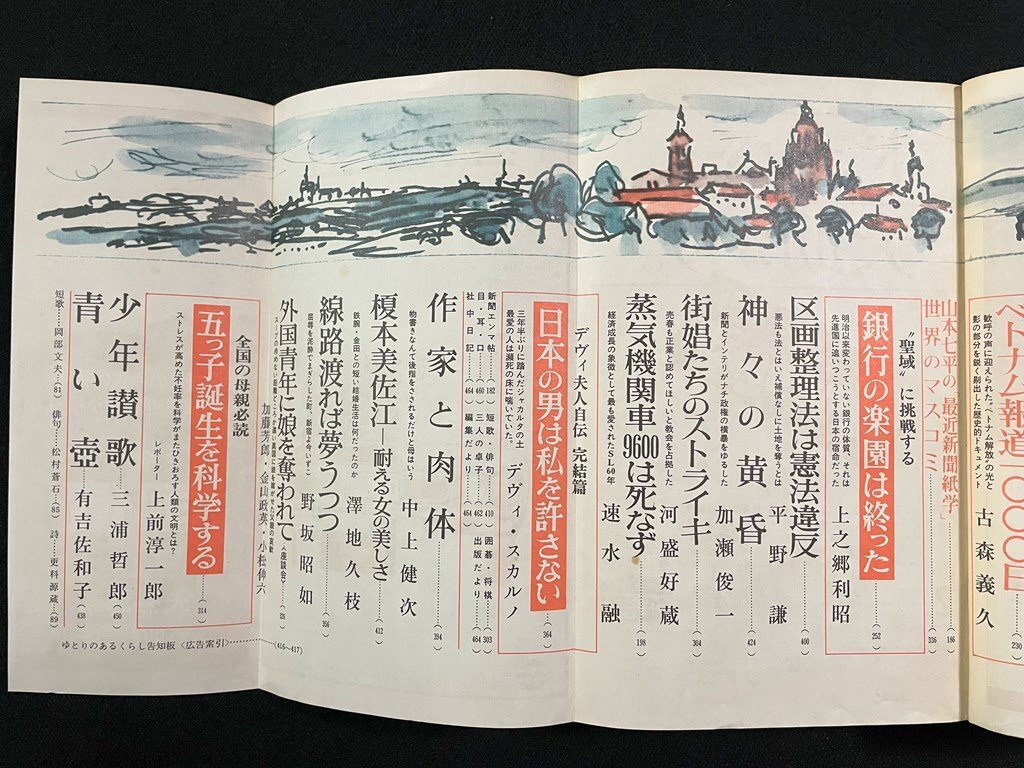 ベトナム報道一〇〇〇日
歓呼の声に迎えられた〝ベトナム解放〟の光と
影の部分を鋭く剔出した歴史的ドキュメント
古森義久
230
山本七平の「最近新聞紙学」
186
世界のマスコミ
336
〝聖域〟に挑戦する
銀行の楽園は終った
252
明治以来変わっていない銀行の体質、それは
先進国に追いつこうとする日本の宿命だった
上之郷利昭
区画整理法は憲法違反
400
悪法も法とはいえ補償なしに土地を奪うとは
平野謙
神々の黄昏
424
新聞とインテリがナチ政権の横暴をゆるした
加瀬俊一
街娼たちのストライキ
304
売春も正業と認めてほしいと教会を占拠した
河盛好蔵
蒸気機関車9600は死なず
198
経済成長の象徴として最も愛されたSL60年
速水融
デヴィ夫人自伝 完結篇
日本の男は私を許さない
364
三年半ぶりに踏んだジャカルタの土
最愛の人は瀕死の床に喘いでいた。
デヴィ・スカルノ
新聞エンマ帖……(182) 短歌・俳句……(410) 囲碁・将棋……(303)
目・耳・口……(460) 三人の卓子……(462) 出版だより……(464)
社中日記……(464) 編集だより……(464)
作家と肉体
394
物書きなんて後指をさされるだけと母はいう
中上健次
榎本美佐江―耐える女の美しさ
412
鉄腕・金田との短い結婚生活は何だったのか
澤地久枝
線路渡れば夢うつつ
356
屈辱を泥酔でまぎらした町、新宿よ今いずこ
野坂昭如
外国青年に娘を奪われて〈座談会〉
326
加藤芳郎・金山政英・小松伸六
全国の母親必読
五つ子誕生を科学する
314
ストレスが高めた不妊率を科学がまたひきおろす人類の文明とは?
レポーター 上前淳一郎
少年讃歌
三浦哲郎
(450)
青い壺
有吉佐和子
(438)
短歌……岡部文夫…(81) 俳句……松村蒼石…(85) 詩……更科源蔵…(89)
ゆとりのあるくらし告知板〈広告索引〉……(416~417)